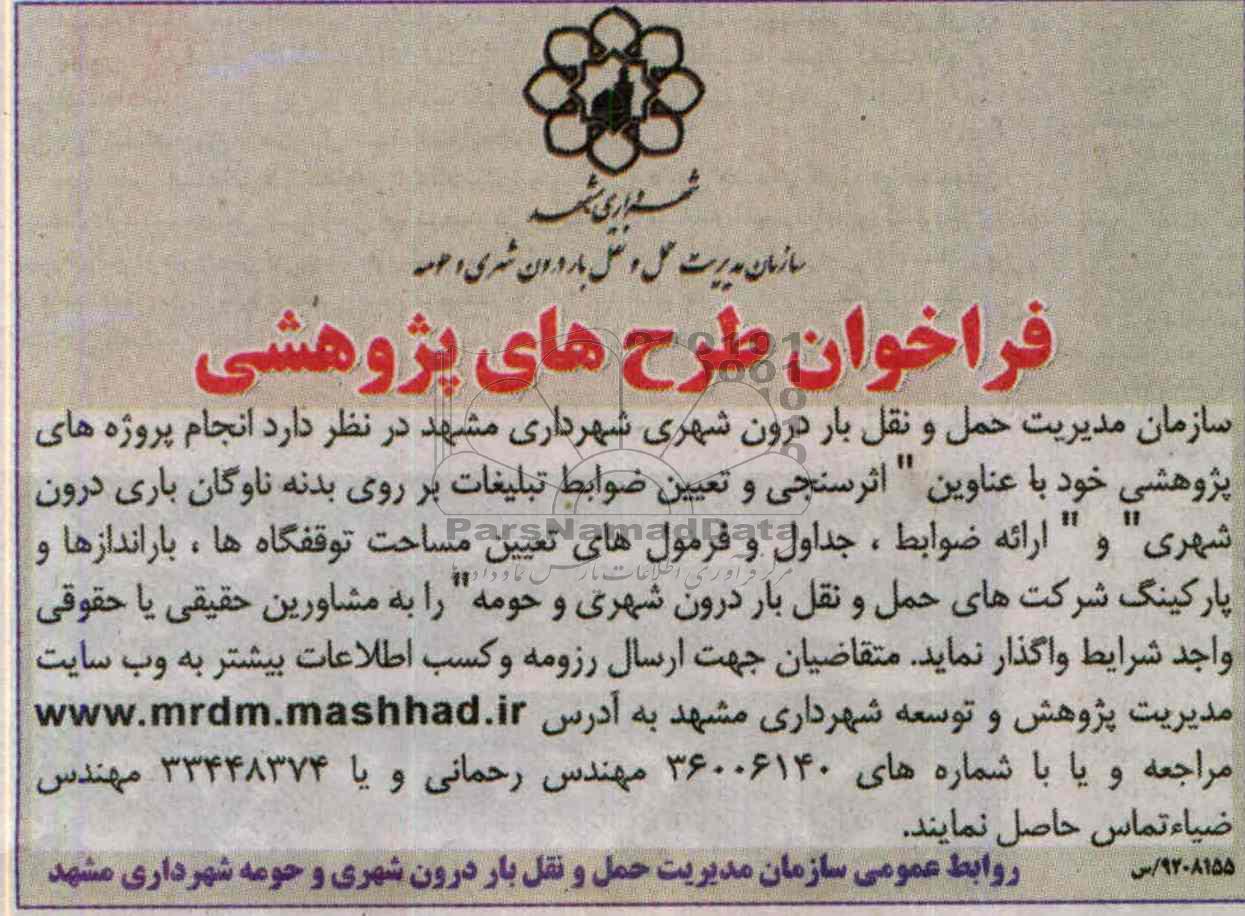 شهرداری مشهد
سازمان مدیریت حمل و نقل بار درون شهری و حومه
فراخوان طرح های پژوهشی
سازمان مدیریت حمل و نقل بار درون شهری شهرداری مشهد در نظر دارد انجام پروژه های
پژوهشی خود با عناوین " اثرسنجی و تعیین ضوابط تبلیغات بر روی بدنه ناوگان باری درون
شهری" و " ارائه ضوابط ، جداول و فرمول های تعیین مساحت توقفگاه ها ، باراندازها و
پارکینگ شرکت های حمل و نقل بار درون شهری و حومه" را به مشاورین حقیقی یا حقوقی
واجد شرایط واگذار نماید. متقاضیان جهت ارسال رزومه و کسب اطلاعات بیشتر به وب سایت
مدیریت پژوهش و توسعه شهرداری مشهد به آدرس www.mrdm.mashhad.ir
مراجعه و یا با شماره های ۳۶۰۰۶۱۴۰ مهندس رحمانی و یا ۳۳۴۴۸۳۷۴ مهندس
ضیاءتماس حاصل نمایند.
۹۲۰۸۱۵۵/س
روابط عمومی سازمان مدیریت حمل و نقل بار درون شهری و حومه شهرداری مشهد
ParsNamadData
مرکز فرآوری اطلاعات پارس نماد داده ها